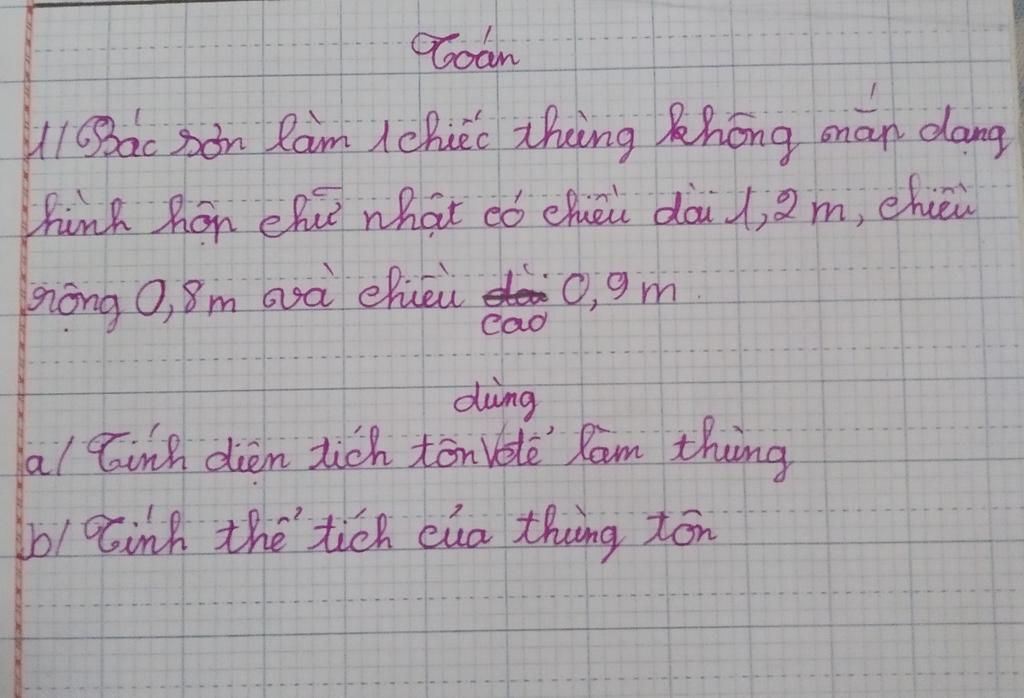 Toán
1/ Bác sơn làm 1 chiếc thùng không nắp dạng
hình hộp chữ nhật có chiều dài 1,2 m, chiều
rộng 0,8 m và chiều dài 0,9 m.
cao
dùng
a/ Tính diện tích tôn để làm thùng
b/ Tính thể tích của thùng tôn